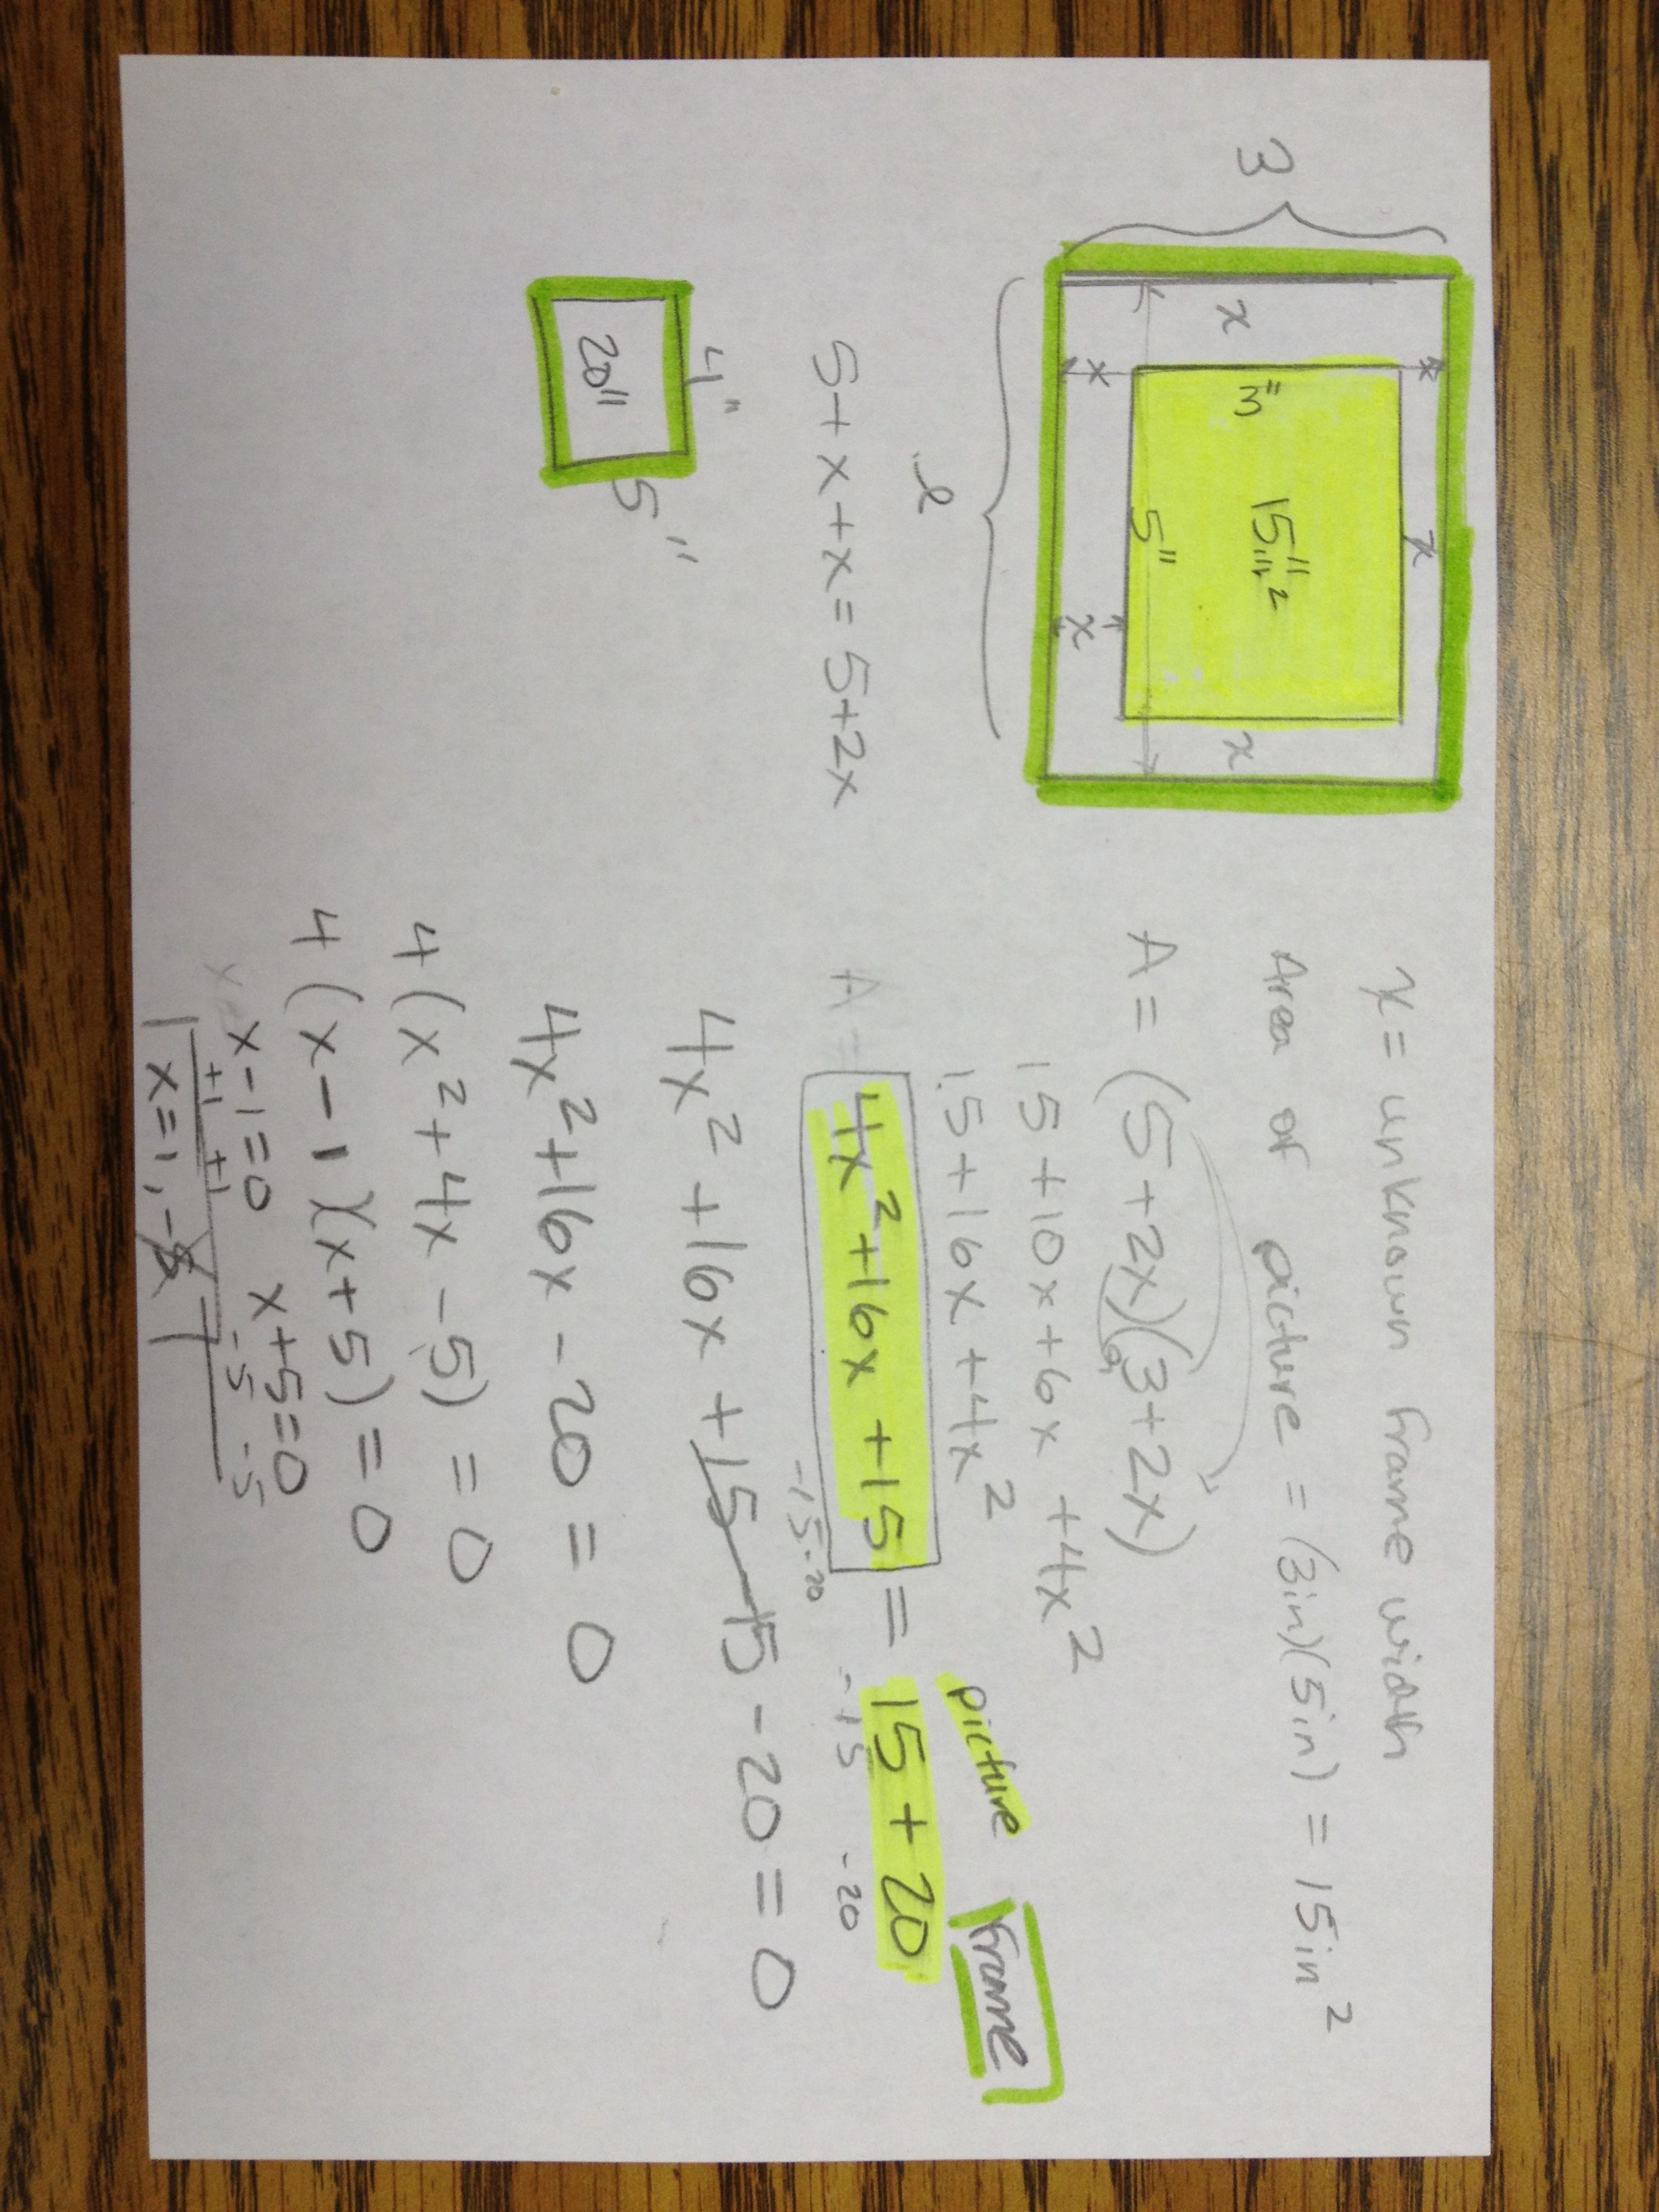 x = unknown frame width
Area of picture = (3in)(5in) = 15in²
A = (5+2x)(3+2x)
15+10x+6x+4x²
15+16x+4x²
picture frame
4x²+16x+15 = 15+20
-15-20 -15 -20
4x²+16x+15-15-20=0
4x²+16x-20=0
4(x²+4x-5)=0
4(x-1)(x+5)=0
x-1=0 x+5=0
+1 +1 -5 -5
x=1, -5
x
x
x
x
3"
15in²
x
5"
x
x
l
5+x+x=5+2x
4"
20"
5"
A =